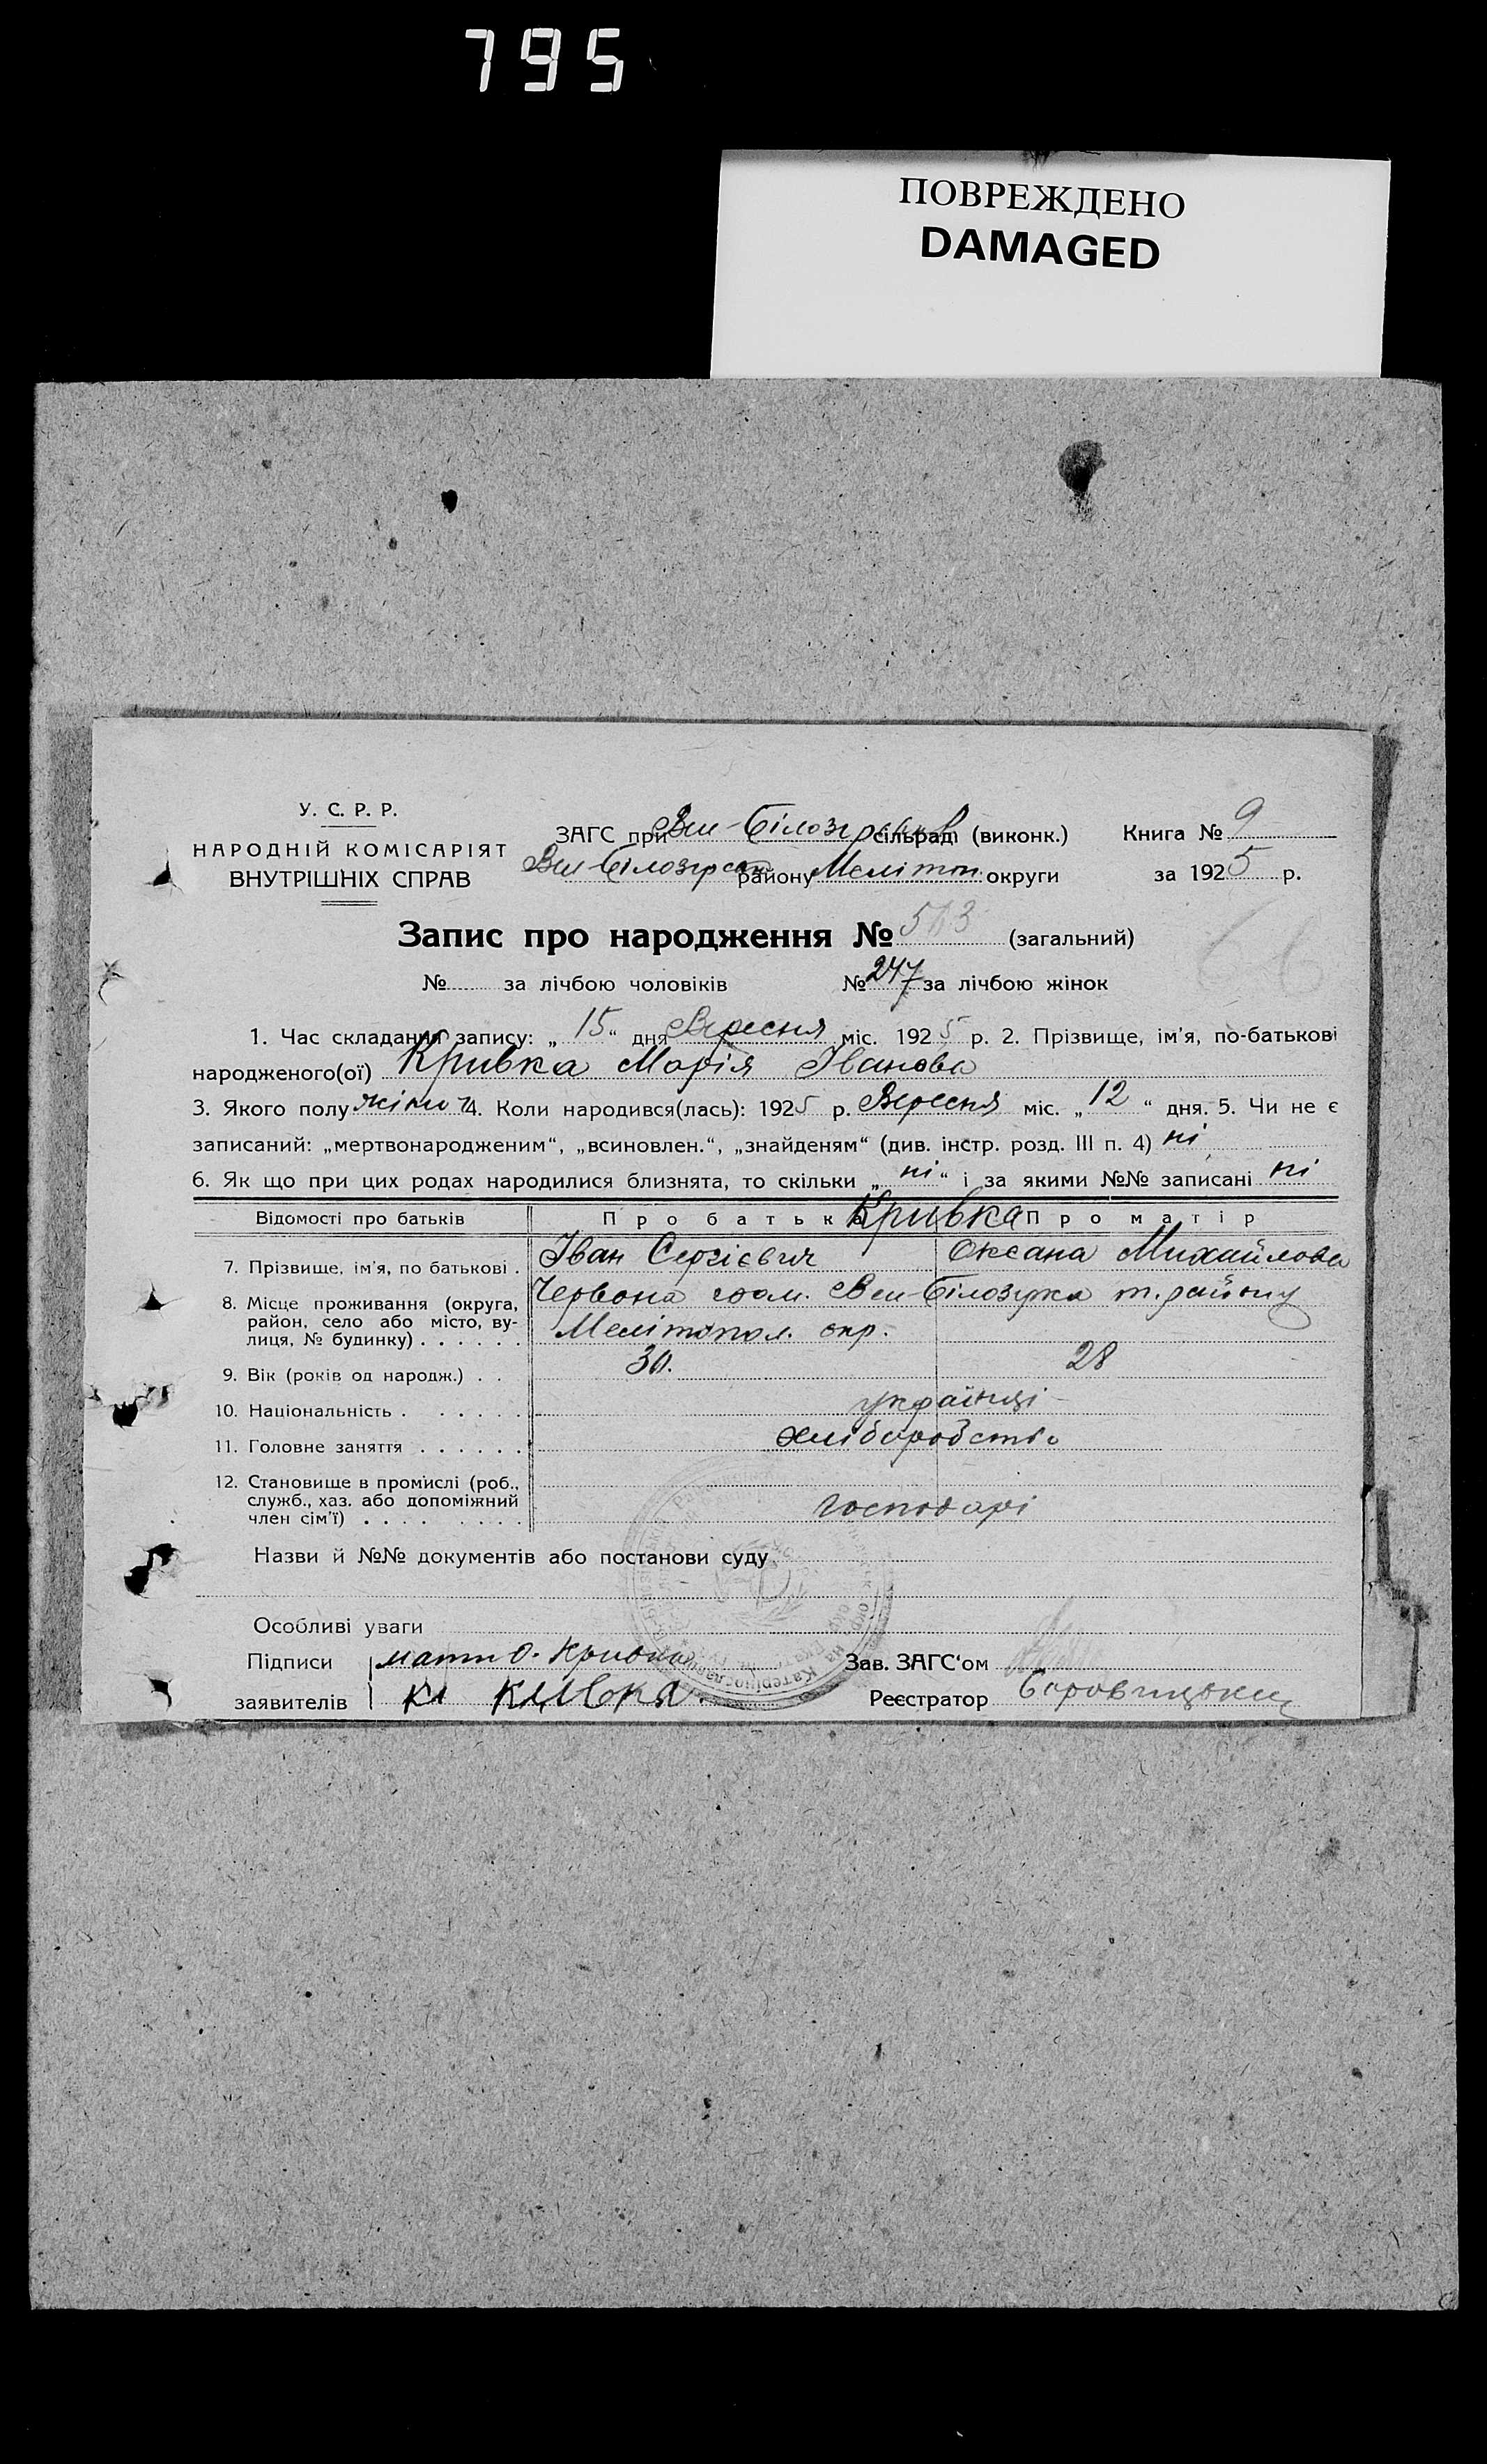 795
ПОВРЕЖДЕНО
DAMAGED
У. С. Р. Р.
НАРОДНІЙ КОМІСАРІЯТ
ВНУТРІШНІХ СПРАВ
ЗАГС при Вел-Білозірськів сільраді (виконк.)
Вел-Білозірськ району Меліточ округи
Книга № 9
за 1925 р.
Запис про народження № 513 (загальний)
№ за лічбою чоловіків № 247 за лічбою жінок
1. Час складання запису: „15“ дня Вересня міс. 1925 р. 2. Прізвище, ім'я, по-батькові
народженого(ої) Кривка Марія Іванова
3. Якого полу жіноч 4. Коли народився(лась): 1925 р. Вересня міс. „12“ дня. 5. Чи не є
записаний: „мертвонародженим“, „всиновлен.“, „знайденям“ (див. інстр. розд. III п. 4) ні
6. Як що при цих родах народилися близнята, то скільки „ні“ і за якими №№ записані ні
Відомості про батьків Про батька Кривка Про матір
7. Прізвище, ім'я, по батькові . Іван Сергієвич Оксана Михайлова
8. Місце проживання (округа, район, село або місто, вулиця, № будинку) . . . . . . Червона Вел-Білозірка т. району
Мелітопол. окр.
9. Вік (років од народж.) . . 30. 28
10. Національність . . . . . . українці
11. Головне заняття . . . . . . хліборобство
12. Становище в промислі (роб., служб., хаз. або допоміжний член сім'ї) . . . . . . . . господарі
Назви й №№ документів або постанови суду
Особливі уваги
Підписи мати О. Кривка Зав. ЗАГС'ом
заявителів Кривка Реєстратор